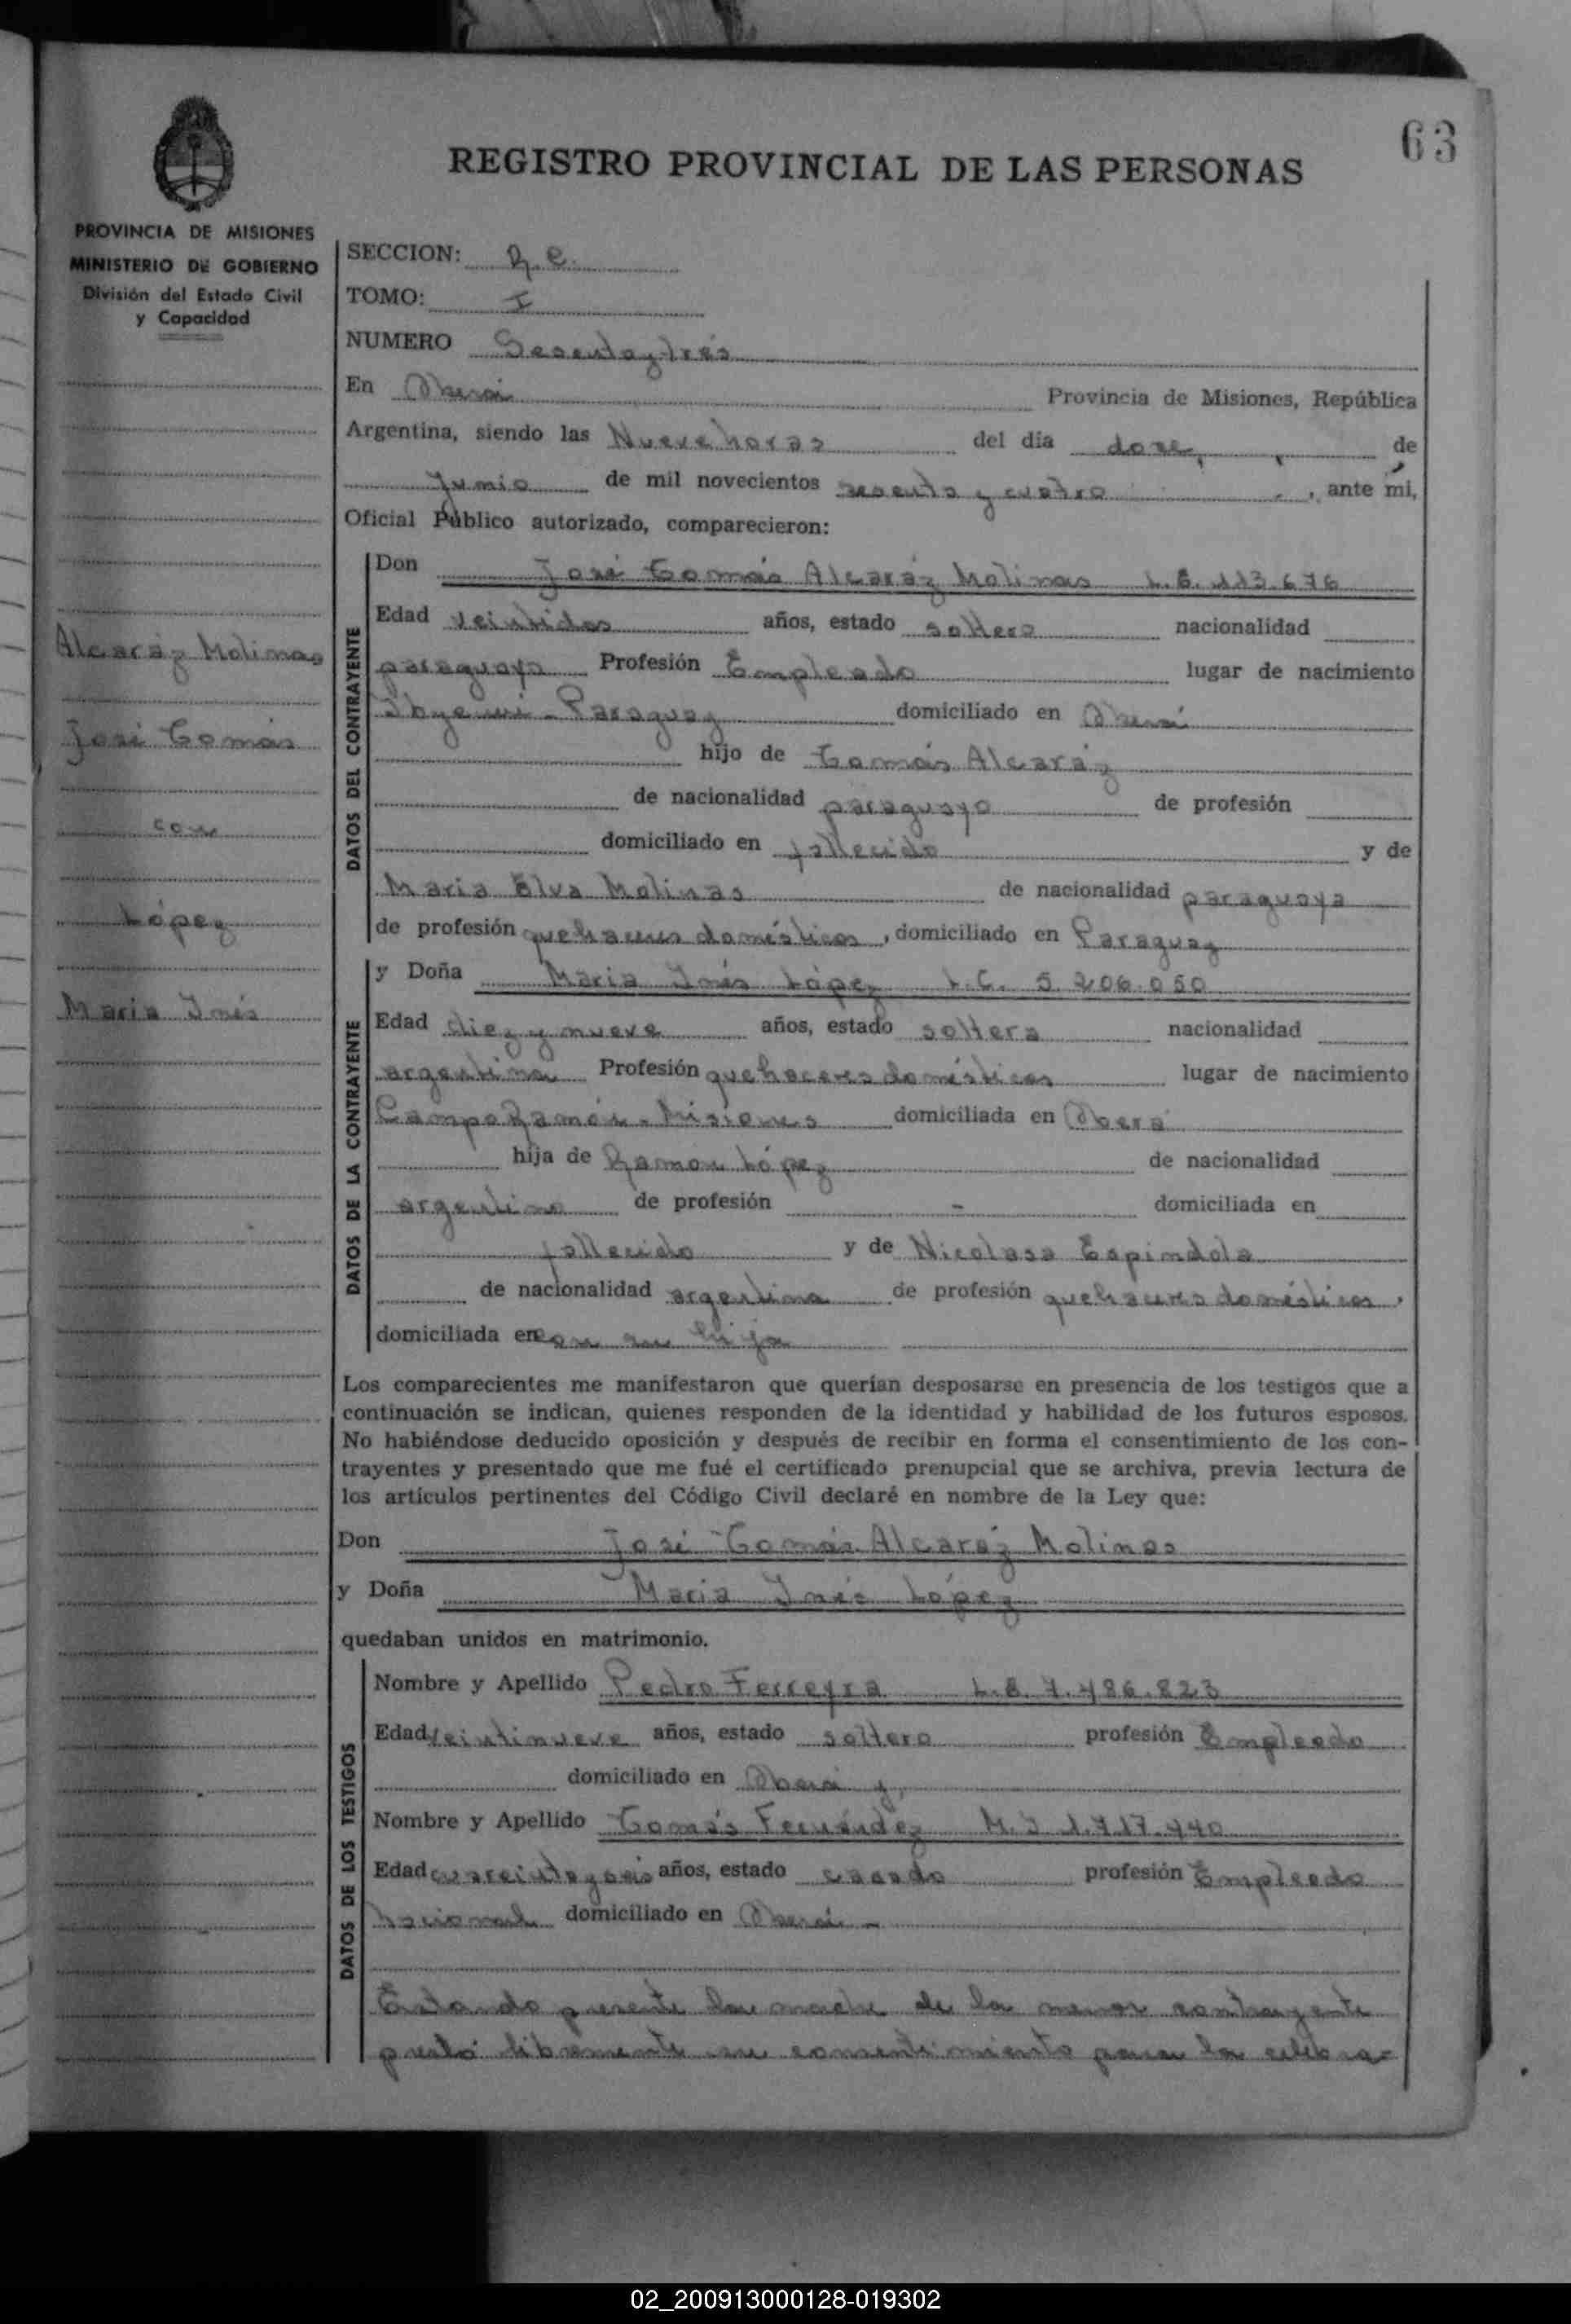 63
REGISTRO PROVINCIAL DE LAS PERSONAS
PROVINCIA DE MISIONES
MINISTERIO DE GOBIERNO
División del Estado Civil
y Capacidad
Alcaráz Molinas
José Tomás
con
López
Maria Inés
SECCION: R. C.
TOMO: I
NUMERO Sesentaytrés
En Oberá Provincia de Misiones, República
Argentina, siendo las Nueve horas del día doze, de
Junio de mil novecientos sesenta y cuatro, ante mí,
Oficial Público autorizado, comparecieron:
DATOS DEL CONTRAYENTE
Don José Tomás Alcaráz Molinas L.E. 113.676
Edad veintidos años, estado soltero nacionalidad
paraguaya Profesión Empleado lugar de nacimiento
Paraguay domiciliado en Oberá
hijo de Tomás Alcaráz
de nacionalidad paraguayo de profesión
domiciliado en fallecido y de
Maria Elva Molinas de nacionalidad paraguaya
de profesión quehaceres domésticos, domiciliado en Paraguay
DATOS DE LA CONTRAYENTE
y Doña Maria Inés López L.C. 5.206.050
Edad diez y nueve años, estado soltera nacionalidad
argentina Profesión quehaceres domésticos lugar de nacimiento
Campo Ramón - Misiones domiciliada en Oberá
hija de Ramon López de nacionalidad
argentino de profesión - domiciliada en
fallecido y de Nicolasa Espindola
de nacionalidad argentina de profesión quehaceres domésticos,
domiciliada en con su hija
Los comparecientes me manifestaron que querían desposarse en presencia de los testigos que a
continuación se indican, quienes responden de la identidad y habilidad de los futuros esposos.
No habiéndose deducido oposición y después de recibir en forma el consentimiento de los con-
trayentes y presentado que me fué el certificado prenupcial que se archiva, previa lectura de
los artículos pertinentes del Código Civil declaré en nombre de la Ley que:
Don José Tomás Alcaráz Molinas
y Doña Maria Inés López
quedaban unidos en matrimonio.
DATOS DE LOS TESTIGOS
Nombre y Apellido Pedro Ferreyra L.E. 7.486.823
Edad veintinueve años, estado soltero profesión Empleado
domiciliado en Oberá y,
Nombre y Apellido Tomás Fernández M.I 1.717.440
Edad cuareintayseis años, estado casado profesión Empleado
Nacional domiciliado en Oberá -
Estando presente la madre de la menor contrayente
prestó libremente su consentimiento para la celebra-
02_200913000128-019302